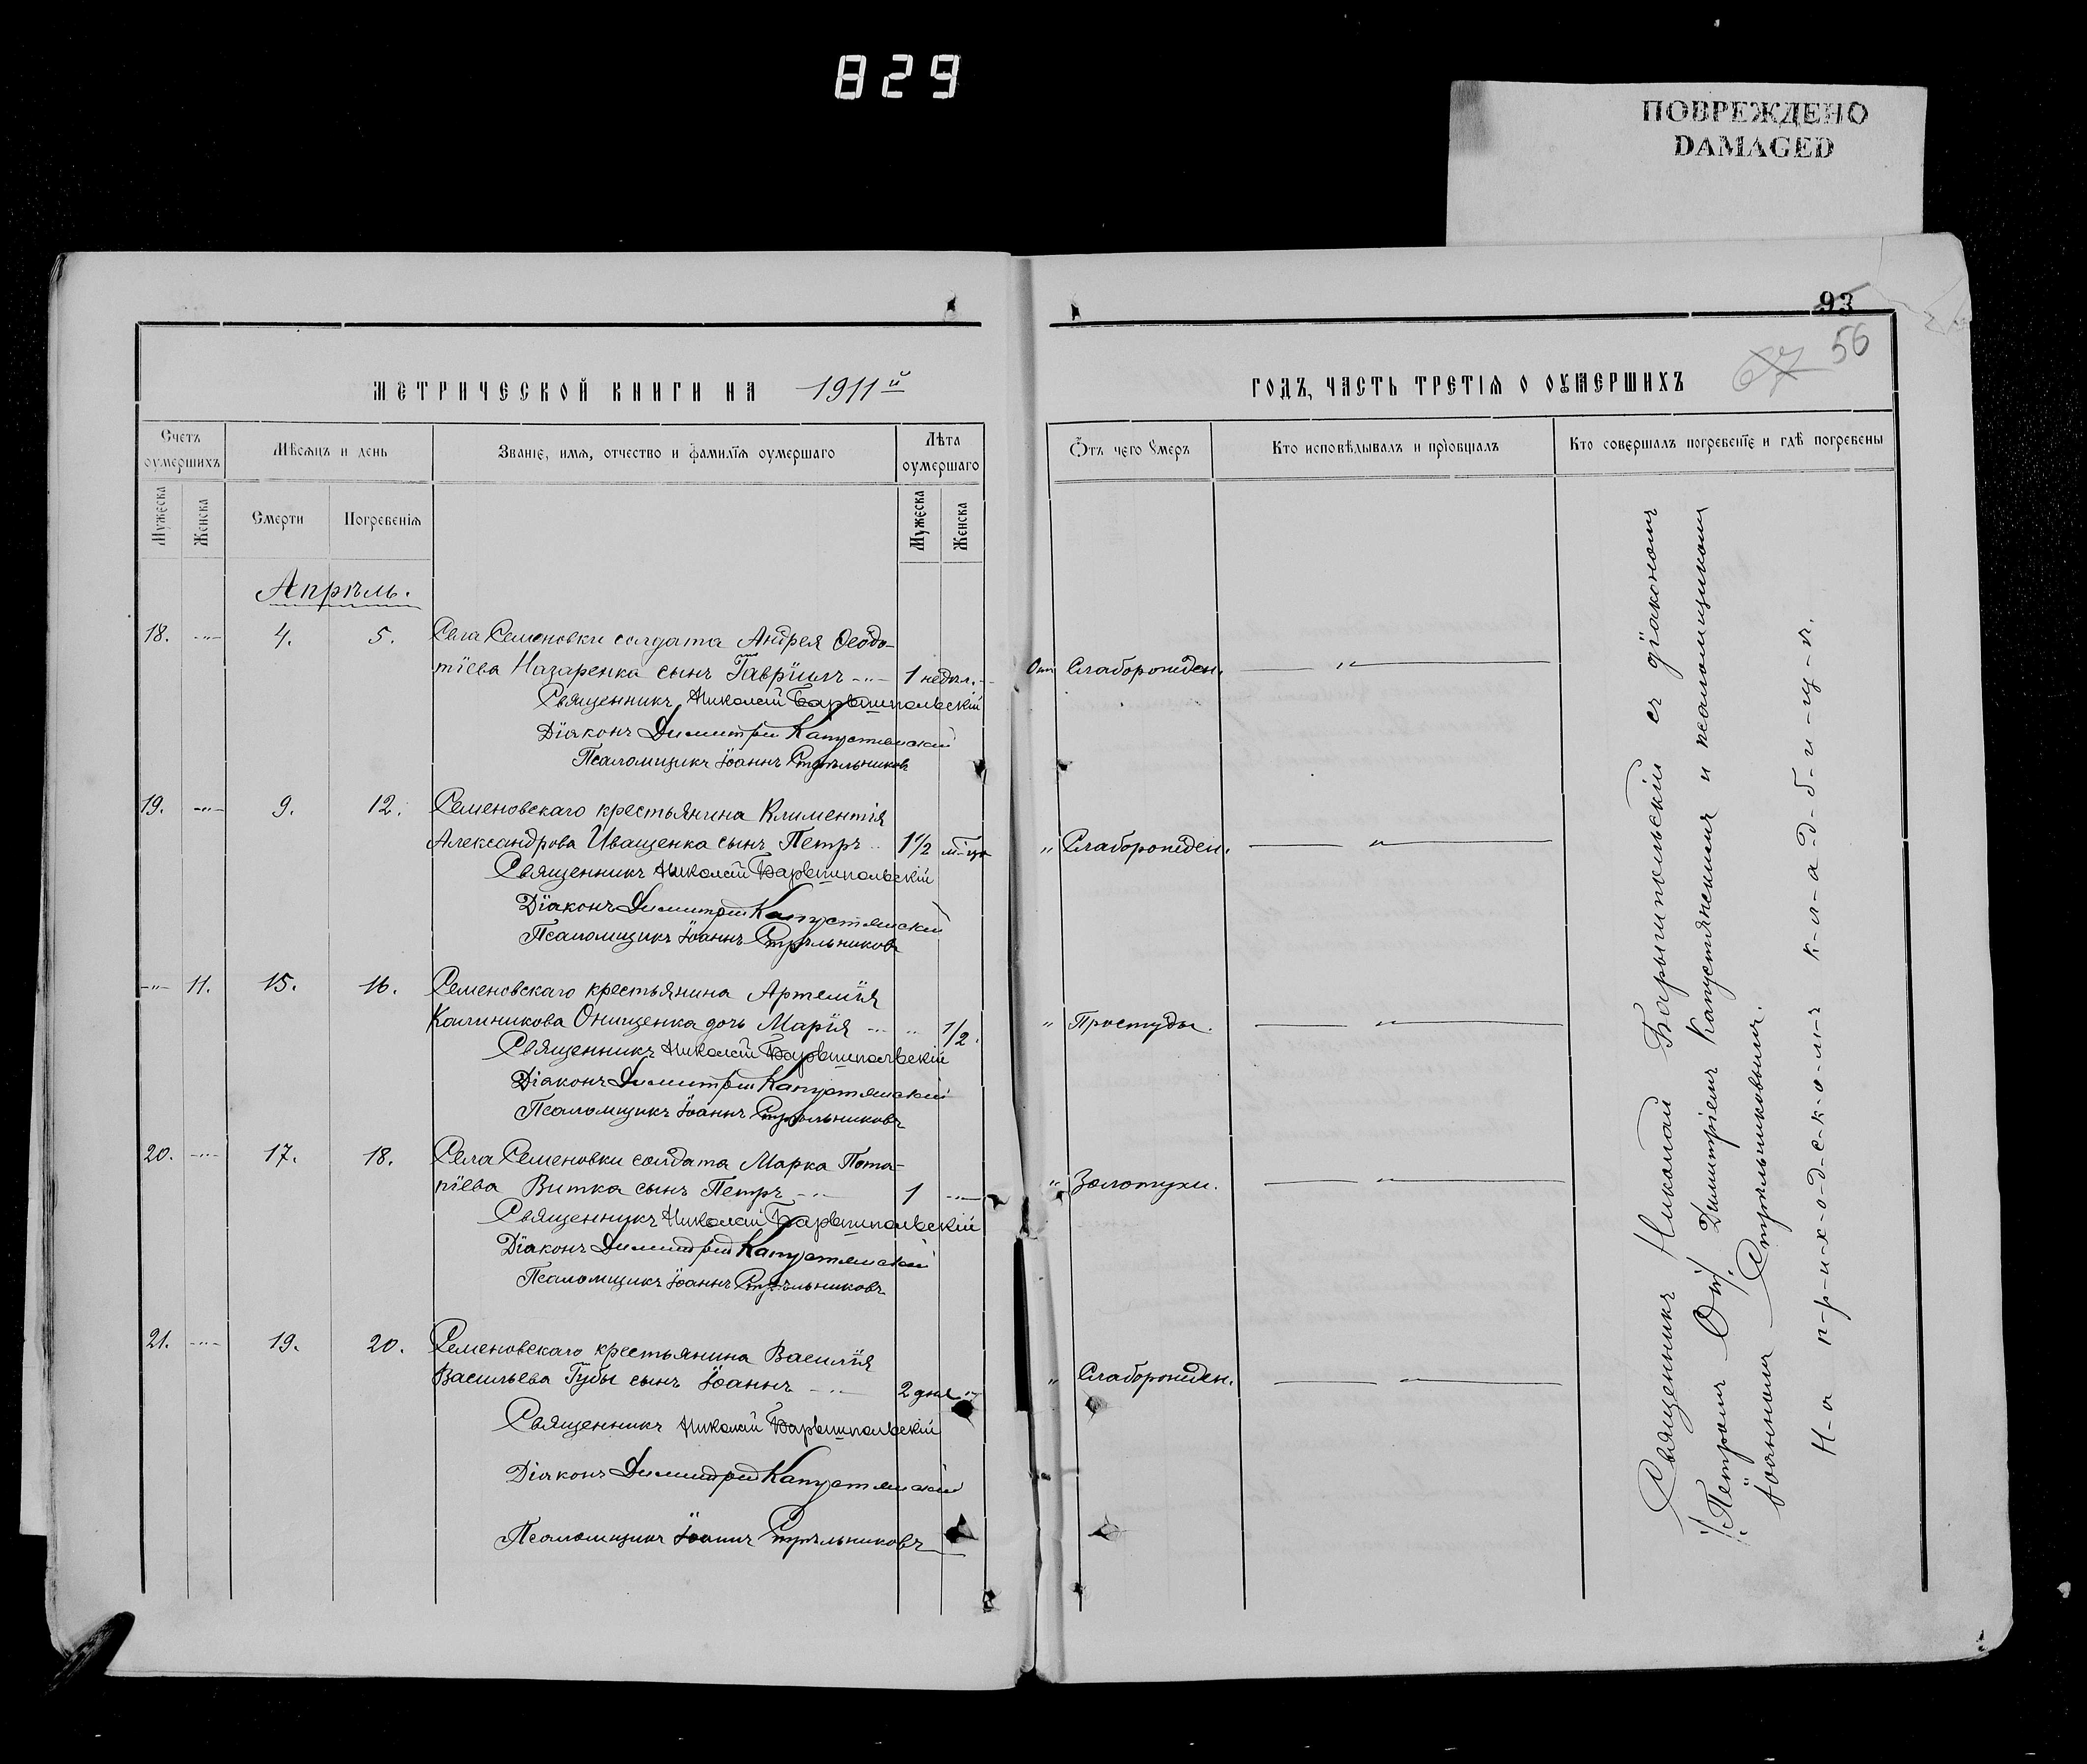 829
ПОВРЕЖДЕНО
DAMAGED
93
67 56
МЕТРИЧЕСКОЙ КНИГИ НА 1911й
ГОДЪ, ЧАСТЬ ТРЕТІѦ О ОУМЕРШИХЪ
Счетъ оумершихъ
Мѣсѧцъ и день
Званіе, имѧ, отчество и фамиліѧ оумершаго
Лѣта оумершаго
Ѿтъ чего Умеръ
Кто исповѣдывалъ и прїобщалъ
Кто совершалъ погребенїе и гдѣ погребены
Мужеска
Женска
Смерти
Погребеніѧ
Мужеска
Женска
Апрѣль.
18. -"- 4. 5. Села Семеновки солдата Андрея Ѳеодо-
тіева Назаренка сынъ Гавріилъ -"- 1 недѣл. Отъ Слаборожден. -"-
Священникъ Николай Барышпольскій
Діаконъ Димитрій Капустянскій
Псаломщикъ Іоаннъ Стрѣльниковъ
19. -"- 9. 12. Семеновскаго крестьянина Климентія
Александрова Иващенка сынъ Петръ .. 1 1/2 м-ца " Слаборожден. -"-
Священникъ Николай Барышпольскій
Діаконъ Димитрій Капустянскій
Псаломщикъ Іоаннъ Стрѣльниковъ
-"- 11. 15. 16. Семеновскаго крестьянина Артемія
Калиникова Онищенка дочь Марія -"- .. 1/2. " Простуды. -"-
Священникъ Николай Барышпольскій
Діаконъ Димитрій Капустянскій
Псаломщикъ Іоаннъ Стрѣльниковъ
20. -"- 17. 18. Села Семеновки солдата Марка Пота-
піева Витка сынъ Петръ -"- 1 -"- " Золотухи. -"-
Священникъ Николай Барышпольскій
Діаконъ Димитрій Капустянскій
Псаломщикъ Іоаннъ Стрѣльниковъ
21. -"- 19. 20. Семеновскаго крестьянина Василія
Васильева Губы сынъ Іоаннъ -"- 2 дня " " Слаборожден. -"-
Священникъ Николай Барышпольскій
Діаконъ Димитрій Капустянскій
Псаломщикъ Іоаннъ Стрѣльниковъ
Священникъ Николай Барышпольскій съ діакономъ
Димитріемъ Капустянскимъ и псаломщикомъ
Іоанномъ Стрѣльниковымъ.
Н-а п-р-и-х-о-д-с-к-о-м-ъ к-л-а-д-б-и-щ-ѣ.